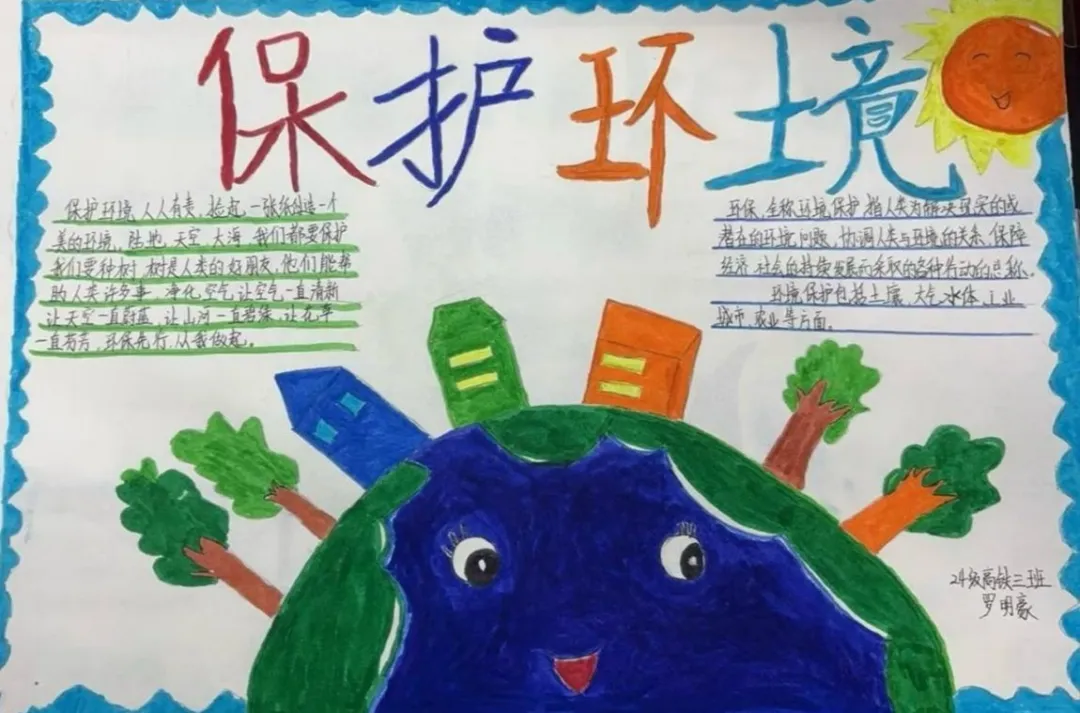 保护环境
保护环境,人人有责,捡起一张纸,创造一个
美的环境,陆地,天空,大海,我们都要保护
我们要种树,树是人类的好朋友,他们能帮
助人类许多事,净化空气,让空气一直清新
让天空一直蔚蓝,让山河一直碧绿,让花草
一直芬芳,环保先行,从我做起。
环保,全称环境保护,指人类为解决现实的或
潜在的环境问题,协调人类与环境的关系,保障
经济社会的持续发展而采取的各种行动的总称。
环境保护包括土壤、大气、水体、工业
城市、农业等方面。
24级高铁三班
罗明豪